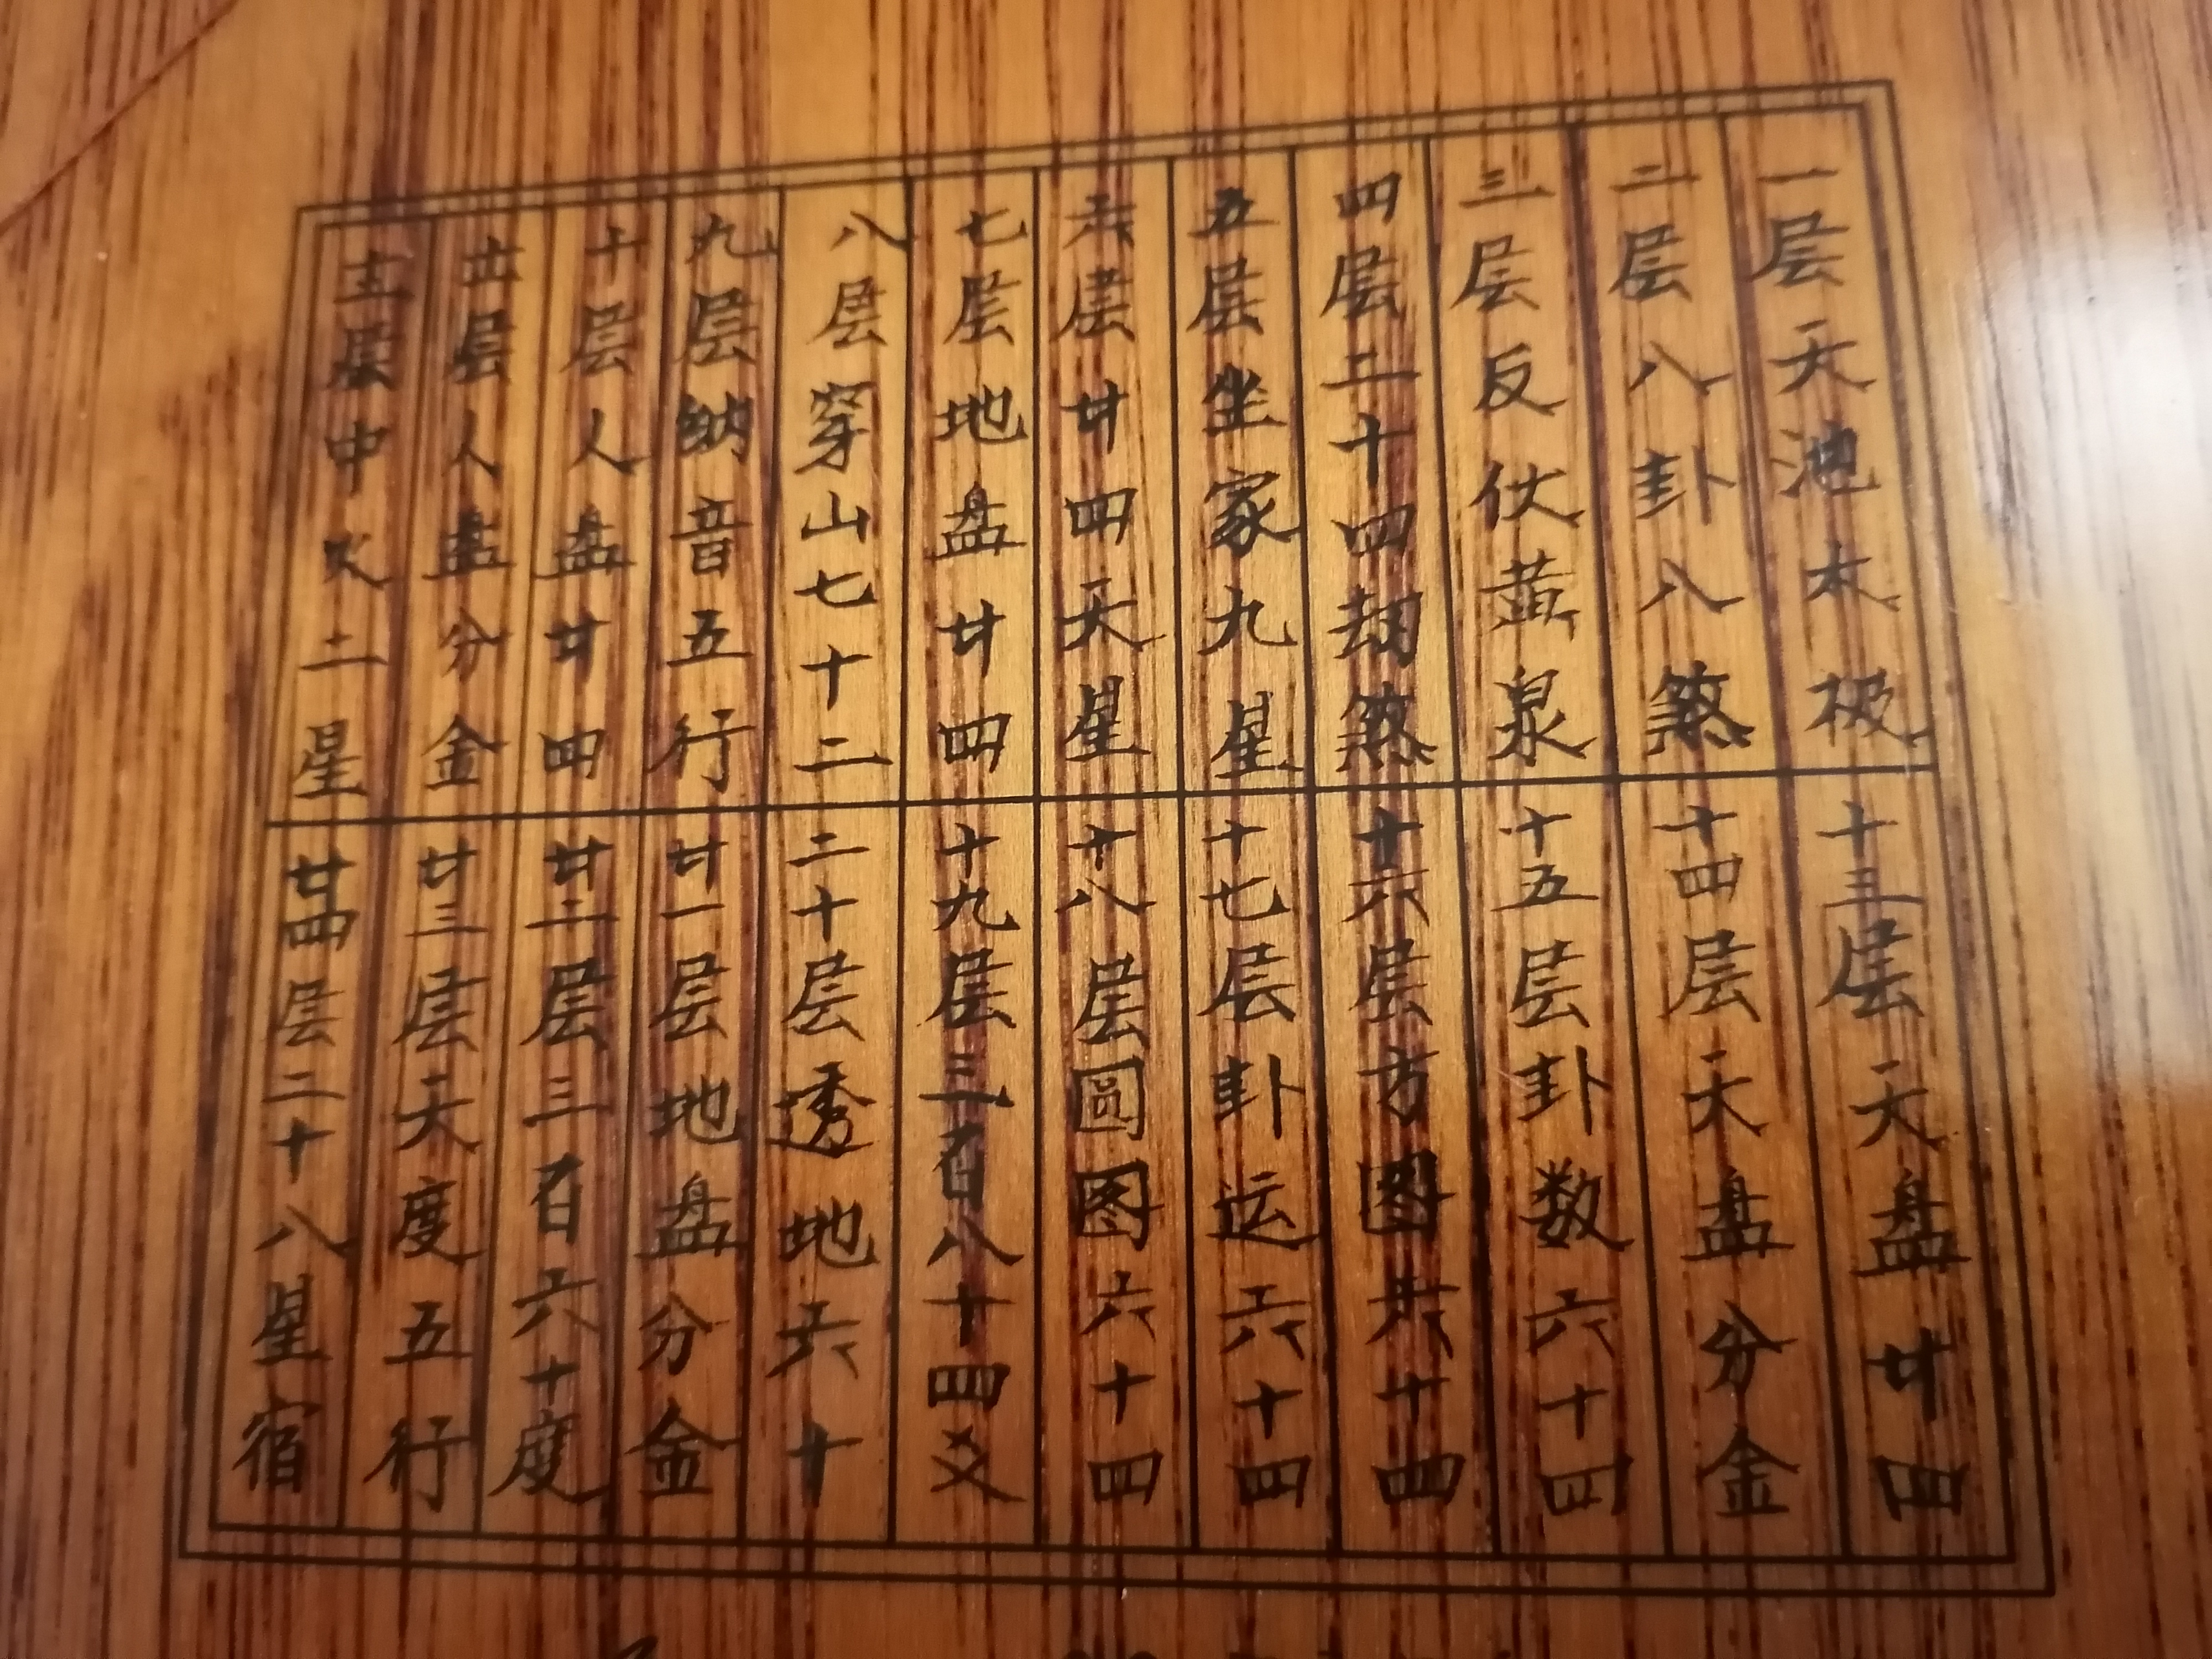 一层天池太极
二层八卦八煞
三层反伏黄泉
四层二十四劫煞
五层坐家九星
六层廿四天星
七层地盘廿四
八层穿山七十二
九层纳音五行
十层人盘廿四
十一层人盘分金
十二层中火二星
十三层天盘廿四
十四层天盘分金
十五层卦数六十四
十六层方图六十四
十七层卦运六十四
十八层圆图六十四
十九层三百八十四爻
二十层透地六十
廿一层地盘分金
廿二层三百六十度
廿三层天度五行
廿四层二十八星宿